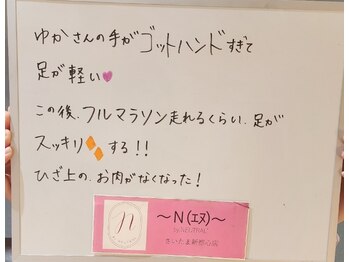 ゆかさんの手がゴットハンドすぎて
足が軽い
この後、フルマラソン走れるくらい、足が
スッキリする!!
ひざ上の、お肉がなくなった!
n
〜N(エヌ)〜
by NEUTRAL
さいたま新都心店